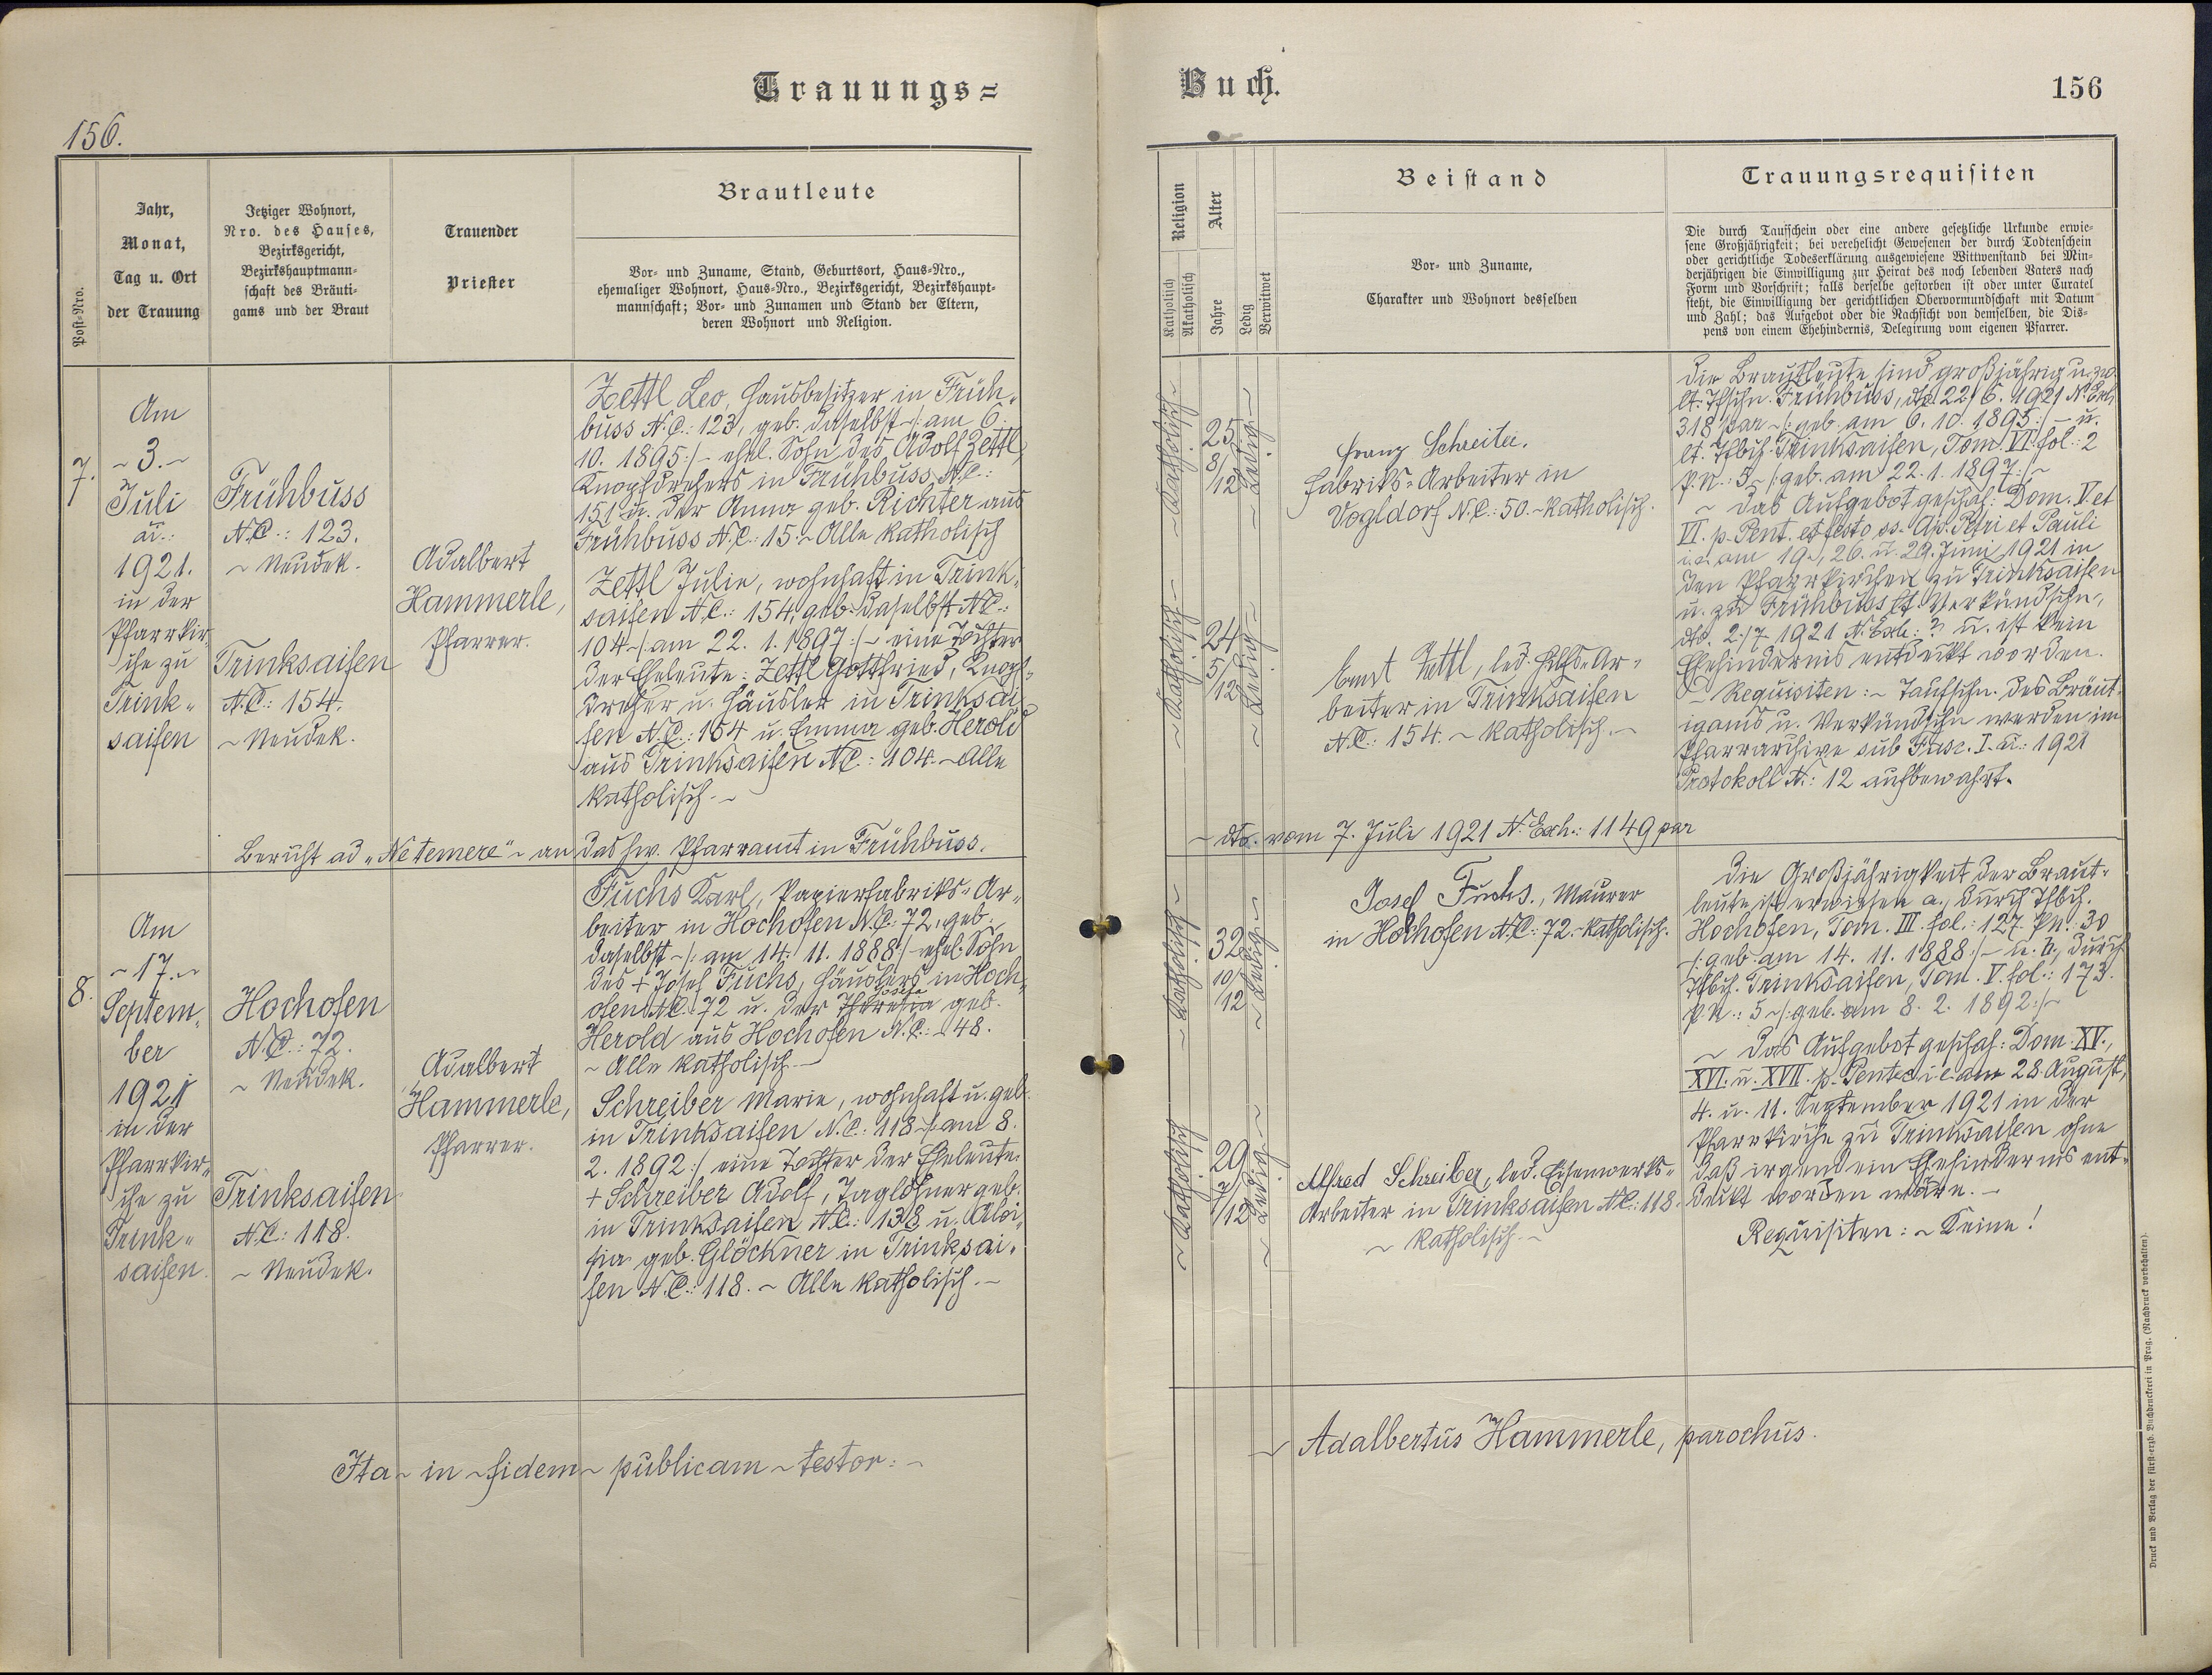 Trauungs=
156.
Post-Nro.
Jahr,
Monat,
Tag u. Ort
der Trauung
Jetziger Wohnort,
Nro. des Hauses,
Bezirksgericht,
Bezirkshauptmann-
schaft des Bräuti-
gams und der Braut
Trauender
Priester
Brautleute
Vor- und Zuname, Stand, Geburtsort, Haus-Nro.,
ehemaliger Wohnort, Haus-Nro., Bezirksgericht, Bezirkshaupt-
mannschaft; Vor- und Zunamen und Stand der Eltern,
deren Wohnort und Religion.
7.
Am
~ 3. ~
Juli
ai.:
1921.
in der
Pfarrkir-
che zu
Trink-
saifen
Frühbuss
N.C.: 123.
~ Neudek.
Trinksaifen
N.C.: 154.
~ Neudek.
Adalbert
Hammerle,
Pfarrer.
Zettl Leo, Hausbesitzer in Früh-
buss N.C.: 123, geb. daselbst ~/: am 6.
10. 1895:/~ ehel. Sohn des Adolf Zettl,
Knopfdrehers in Frühbuss N.C.:
151 u. der Anna geb. Richter aus
Frühbuss N.C.: 15. ~ Alle katholisch
Zettl Julie, wohnhaft in Trink-
saifen N.C.: 154, geb. daselbst N.C.:
104 ~/: am 22. 1. 1897:/~ eine Tochter
der Eheleute: Zettl Gottfried, Knopf-
dreher u. Häusler in Trinksai-
fen N.C.: 154 u. Emma geb. Herold
aus Trinksaifen N.C.: 104. ~ Alle
katholisch. ~
Bericht ad „Ne temere" ~ an das hw. Pfarramt in Frühbuss.
8.
Am
~ 17. ~
Septem-
ber
1921
in der
Pfarrkir-
che zu
Trink-
saifen.
Hochofen
N.C.: 72.
~ Neudek.
Trinksaifen
N.C.: 118.
~ Neudek.
Adalbert
Hammerle,
Pfarrer.
Fuchs Karl, Papierfabriks-Ar-
beiter in Hochofen N.C.: 72, geb.
daselbst ~/: am 14. 11. 1888:/~ ehel. Sohn
des + Josef Fuchs, Häuslers in Hoch-
Josefa
ofen N.C. 72 u. der Theresia geb.
Herold aus Hochofen N.C.: 48.
~ Alle katholisch. ~
Schreiber Marie, wohnhaft u. geb.
in Trinksaifen N.C.: 118 ~/: am 8.
2. 1892:/ eine Tochter der Eheleute:
+ Schreiber Adolf, Taglöhner geb.
in Trinksaifen N.C.: 138 u. Aloi-
sia geb. Glöckner in Trinksai-
fen N.C.: 118. ~ Alle katholisch. ~
Ita ~ in ~ fidem ~ publicam ~ testor: ~
Buch.
156
Religion
Katholisch
Akatholisch
Alter
Jahre
Ledig
Verwitwet
Beistand
Vor- und Zuname,
Charakter und Wohnort desselben
Trauungsrequisiten
Die durch Taufschein oder eine andere gesetzliche Urkunde erwie-
sene Großjährigkeit; bei verehelicht Gewesenen der durch Todtenschein
oder gerichtliche Todeserklärung ausgewiesene Wittwenstand bei Min-
derjährigen die Einwilligung zur Heirat des noch lebenden Vaters nach
Form und Vorschrift; falls derselbe gestorben ist oder unter Curatel
steht, die Einwilligung der gerichtlichen Obervormundschaft mit Datum
und Zahl; das Aufgebot oder die Nachsicht von demselben, die Dis-
pens von einem Ehehindernis, Delegirung vom eigenen Pfarrer.
~ Katholisch ~
25
8/12
~ Ledig ~
Franz Schreiter.
Fabriks-Arbeiter in
Vogldorf N.C.: 50. ~ Katholisch.
~ Katholisch ~
24
5/12
~ Ledig ~
Ernst Zettl, led. Hilfs-Ar-
beiter in Trinksaifen
N.C.: 154. ~ Katholisch. ~
Die Brautleute sind großjährig u. zw.
lt. Tfschn. Frühbuss, dto. 22/6. 1921 N. Exh.
318 par ~/: geb. am 6. 10. 1895:/~ u.
lt. Tfbch. Trinksaifen, Tom. VI. fol.: 2
p.N.: 5 ~/: geb. am 22. 1. 1897:/~
~ Das Aufgebot geschah: Dom. V. et
VI. p. Pent. et festo ss. Ap. Petri et Pauli
i.e. am 19., 26. u. 29. Juni 1921 in
den Pfarrkirchen zu Trinksaifen
u. zu Frühbuss lt. Verkündschn.,
dto. 2./7. 1921 N. Exh.: ? u. ist kein
Ehehindernis entdeckt worden.
~ Requisiten: ~ Taufschn. des Bräut-
igams u. Verkündschn werden im
Pfarrarchive sub Fasc. I. ai.: 1921
Protokoll N.: 12 aufbewahrt.
~ dto. vom 7. Juli 1921 N. Exh.: 1149 par
~ Katholisch ~
32
10/12
~ Ledig ~
Josef Fuchs., Maurer
in Hochofen N.C.: 72. ~ Katholisch.
~ Katholisch
29
7/12
~ Ledig ~
Alfred Schreiber, led. Eisenwerks-
Arbeiter in Trinksaifen N.C.: 118.
~ Katholisch. ~
Die Großjährigkeit der Braut-
leute ist erwiesen a., durch Tfbch.
Hochofen, Tom. III. fol.: 127. Pn.: 30
~/: geb. am 14. 11. 1888:/~ u. b., durch
Tfbch. Trinksaifen, Tom. V. fol.: 173.
p.N.: 5 ~/: geb. am 8. 2. 1892:/~
~ Das Aufgebot geschah: Dom. XV.,
XVI. u. XVII. p. Pentec. i.e. am 28. August,
4. u. 11. September 1921 in der
Pfarrkirche zu Trinksaifen ohne
daß irgend ein Ehehindernis ent-
deckt worden wäre. ~
Requisiten: ~ Keine!
~ Adalbertus Hammerle, parochus.
Druck und Verlag der fürst-erzb. Buchdruckerei in Prag. (Nachdruck vorbehalten).